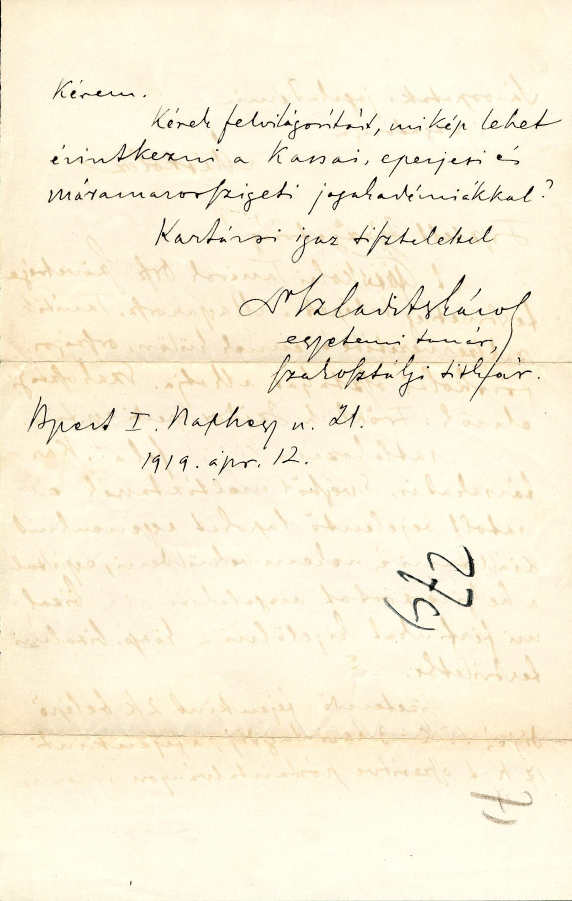 Kérem.
Kérek felvilágosítást, mikép lehet
érintkezni a Kassai, eperjesi és
máramarosszigeti jogakadémiákkal?
Kartársi igaz tisztelettel
Dr Szladits Károly
egyetemi tanár,
szakosztályi titkár.
Bpest I. Naphegy u. 21.
1919. ápr. 12.